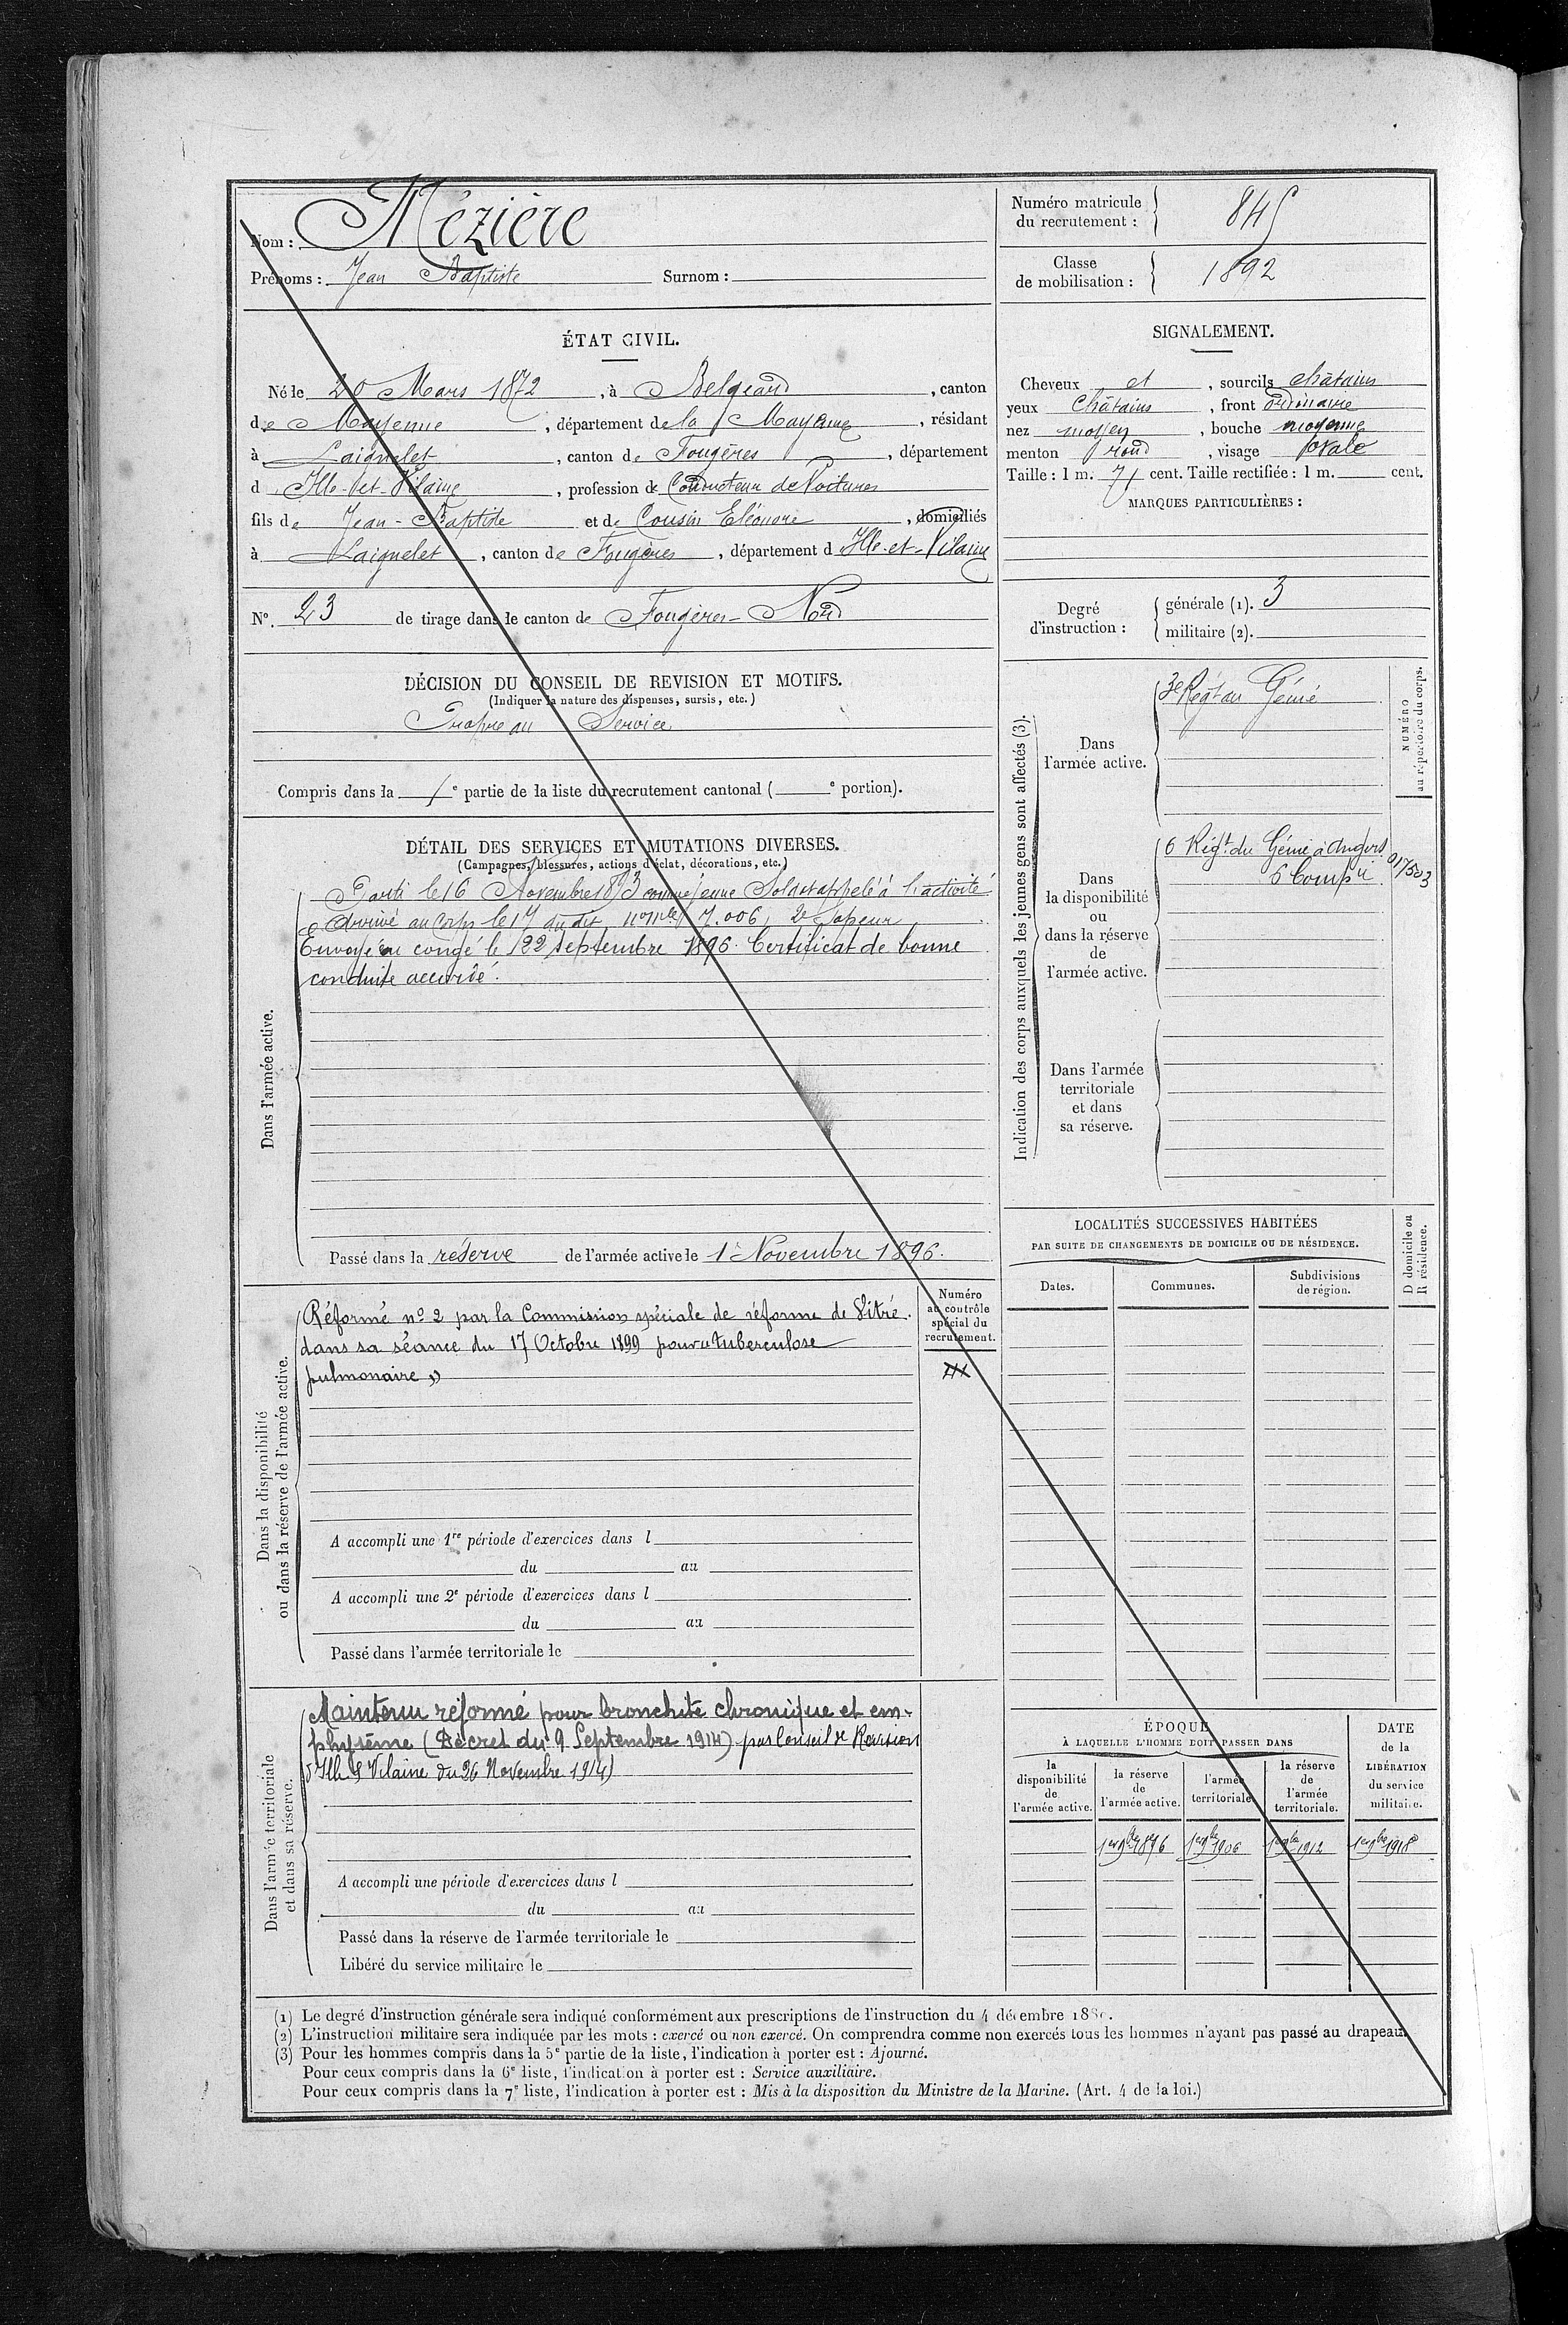 Nom : Mézière
Prénoms : Jean Baptiste Surnom :
Numéro matricule du recrutement : 845
Classe de mobilisation : 1892
ÉTAT CIVIL.
Né le 20 Mars 1872, à Belgeard, canton
de Mayenne, département de la Mayenne, résidant
à Laignelet, canton de Fougères, département
d Ille-et-Vilaine, profession de Conducteur de Voitures
fils de Jean-Baptiste et de Cousin Eléonore, domiciliés
à Laignelet, canton de Fougères, département d Ille-et-Vilaine
No. 23 de tirage dans le canton de Fougères-Nord
DÉCISION DU CONSEIL DE REVISION ET MOTIFS.
(Indiquer la nature des dispenses, sursis, etc.)
Propre au Service
Compris dans la 1e partie de la liste du recrutement cantonal ( e portion).
DÉTAIL DES SERVICES ET MUTATIONS DIVERSES.
(Campagnes, blessures, actions d'éclat, décorations, etc.)
Dans l'armée active.
Parti le 16 Novembre 1893 comme jeune Soldat appelé à l'activité
Arrivé au Corps le 17 du dit no mle 7.006, 2e Sapeur
Envoyé en congé le 22 septembre 1896. Certificat de bonne
conduite accordé.
Passé dans la réserve de l'armée active le 1er Novembre 1896.
Dans la disponibilité
ou dans la réserve de l'armée active.
Numéro
au contrôle
spécial du
recrutement.
Réformé no 2 par la Commission spéciale de réforme de Vitré
dans sa séance du 17 Octobre 1899 pour « tuberculose
pulmonaire »
A accompli une 1re période d'exercices dans l
du au
A accompli une 2e période d'exercices dans l
du au
Passé dans l'armée territoriale le
Dans l'armée territoriale
et dans sa réserve.
Maintenu réformé pour bronchite chronique et em-
physème (Décret du 9 Septembre 1914) par Conseil de Revision
d'Ille & Vilaine du 26 Novembre 1914)
A accompli une période d'exercices dans l
du au
Passé dans la réserve de l'armée territoriale le
Libéré du service militaire le
SIGNALEMENT.
Cheveux et, sourcils châtains
yeux Châtains, front ordinaire
nez moyen, bouche moyenne
menton rond, visage ovale
Taille : 1 m. 71 cent. Taille rectifiée : 1 m. cent.
MARQUES PARTICULIÈRES :
Degré d'instruction :
générale (1). 3
militaire (2).
Indication des corps auxquels les jeunes gens sont affectés (3).
NUMÉRO
au répertoire du corps.
Dans
l'armée active.
3e Régt du Génie
Dans
la disponibilité
ou
dans la réserve
de
l'armée active.
6 Régt du Génie à Angers
6 Compie
Dans l'armée
territoriale
et dans
sa réserve.
LOCALITÉS SUCCESSIVES HABITÉES
PAR SUITE DE CHANGEMENTS DE DOMICILE OU DE RÉSIDENCE.
Dates. Communes. Subdivisions de région.
D domicile ou
R résidence.
ÉPOQUE
À LAQUELLE L'HOMME DOIT PASSER DANS
la disponibilité de l'armée active.
la réserve de l'armée active.
l'armée territoriale
la réserve de l'armée territoriale.
DATE de la LIBÉRATION du service militaire.
1er 9bre 1896 1er 9bre 1906 1er 9bre 1912 1er 9bre 1918
(1) Le degré d'instruction générale sera indiqué conformément aux prescriptions de l'instruction du 4 décembre
(2) L'instruction militaire sera indiquée par les mots : exercé ou non exercé. On comprendra comme non exercés tous les hommes n'ayant pas passé au drapeau.
(3) Pour les hommes compris dans la 5e partie de la liste, l'indication à porter est : Ajourné.
Pour ceux compris dans la 6e liste, l'indication à porter est : Service auxiliaire.
Pour ceux compris dans la 7e liste, l'indication à porter est : Mis à la disposition du Ministre de la Marine. (Art. 4 de la loi.)